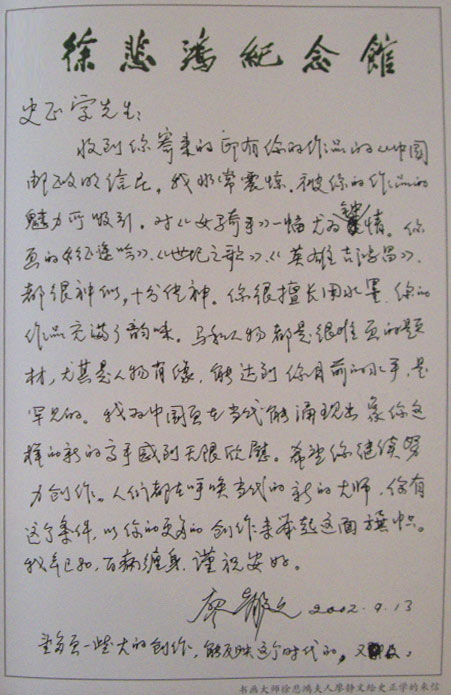 徐悲鸿纪念館
史正学先生:
收到你寄来的印有你的作品的《中国
邮政明信片。我非常震惊。被你的作品的
魅力所吸引。对《女骑手》一幅尤为钟情。你
画的《征途吟》、《世纪之歌》、《英雄吉鸿昌》,
都很神似,十分传神。你很擅长用水墨,你的
作品充满了韵味。马和人物都是很难画的题
材,尤其是人物肖像,能达到你目前的水平,是
罕见的。我为中国画在当代能涌现出象你这
样的新的高手感到无限欣慰。希望你继续努
力创作。人们都在呼唤当代的新的大师,你有
这个条件,以你的更多的创作来举起这面旗帜。
我年已80,百病缠身,谨祝安好。
廖静文 2002.9.13
要多画一些大的创作,能反映这个时代的,又
书画大师徐悲鸿夫人廖静文给史正学的来信